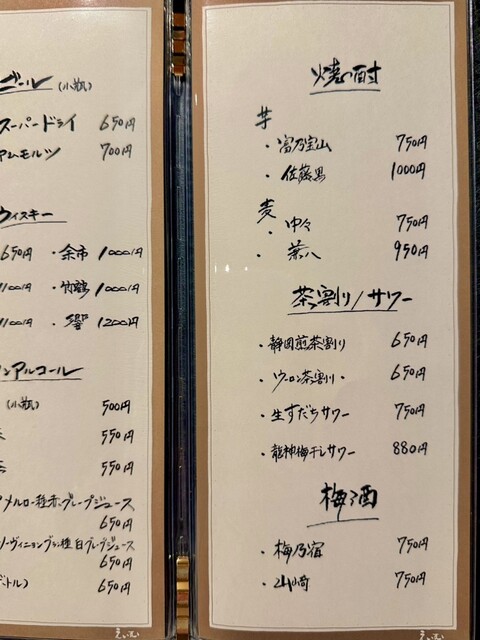 ビール (小瓶)
スーパードライ 650円
アムモルツ 700円
ウィスキー
650円 ・余市 1000円
1100円 ・竹鶴 1000円
1100円 ・響 1200円
ンアルコール
(小瓶) 500円
550円
550円
メルロー種赤グレープジュース
650円
ソーヴィニヨンブラン種白グレープジュース
650円
ボトル) 650円
焼酎
芋
・富乃宝山 750円
・佐藤黒 1000円
麦
・中々 750円
・兼八 950円
茶割り/サワー
・静岡煎茶割り 650円
・ウーロン茶割り・ 650円
・生すだちサワー 750円
・龍神梅干しサワー 880円
梅酒
・梅乃宿 750円
・山崎 750円